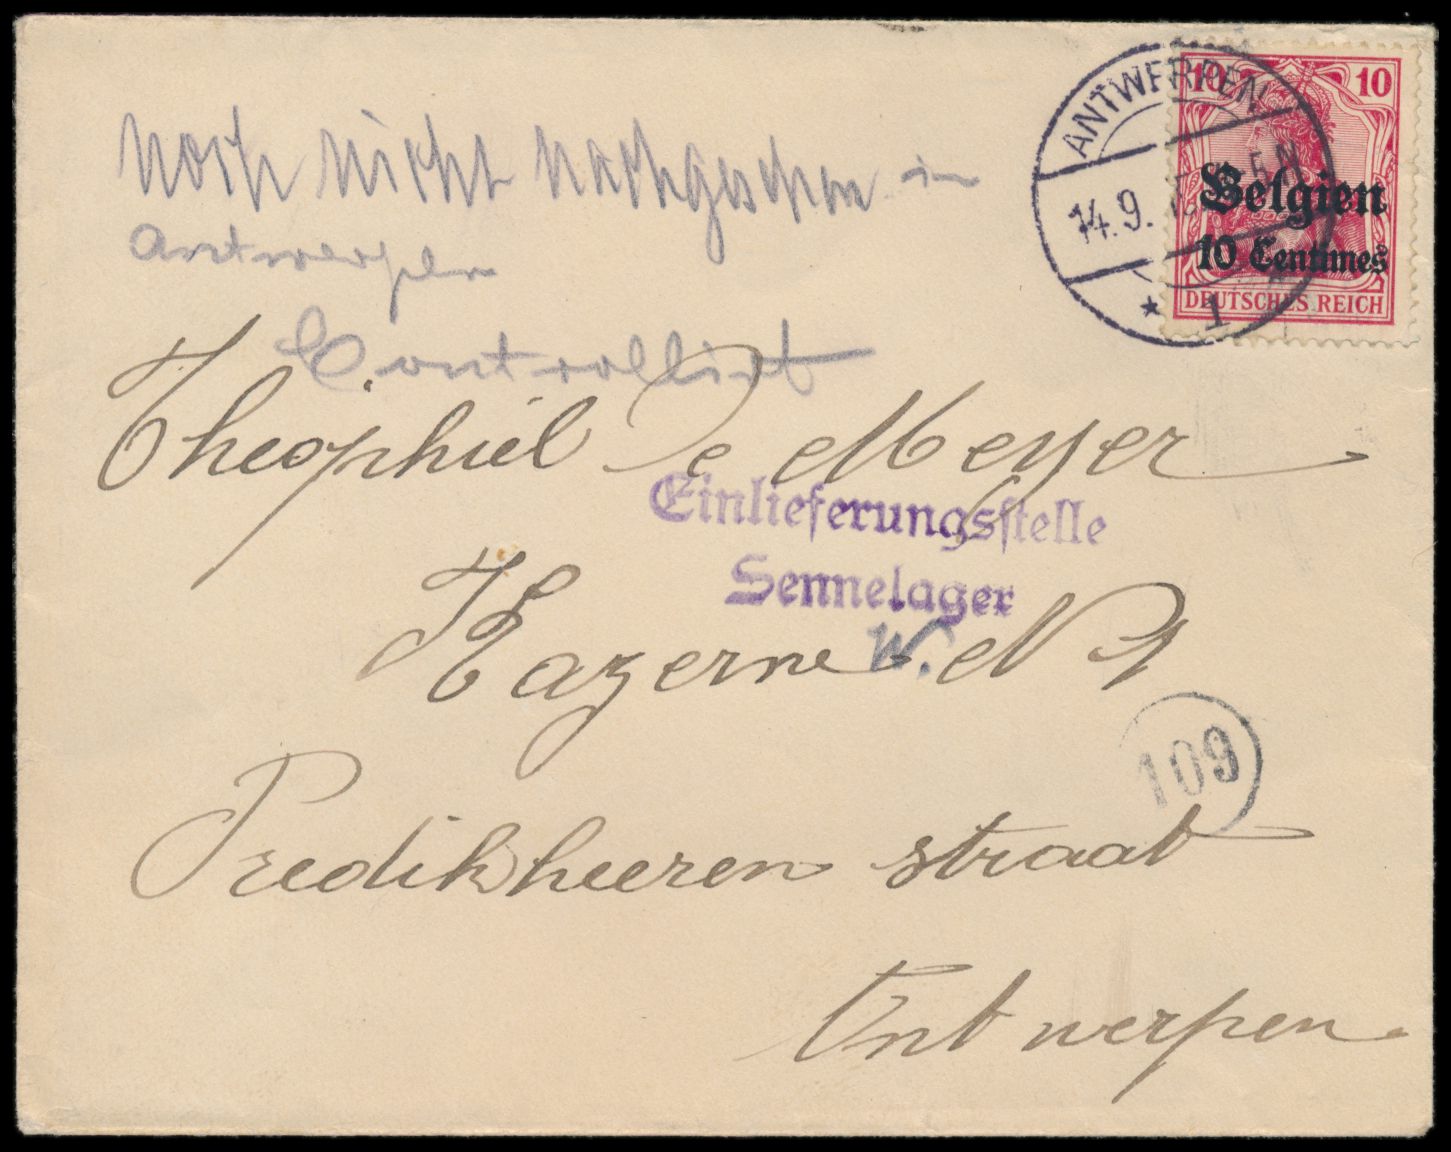 noch nicht nachgesehen in
Antwerpen
Controllirt
ANTWERPEN
14.9.
* 1 *
10 10
Belgien
10 Centimes
DEUTSCHES REICH
Theophiel De Meyer
Einlieferungsstelle
Sennelager
W.
Kazerne N 1
109
Predikheeren straat
Antwerpen